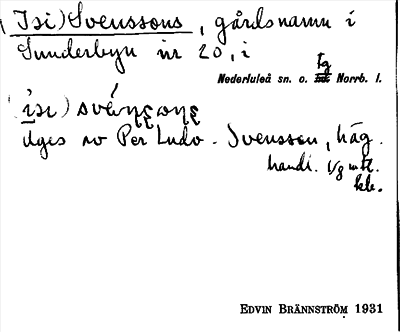 (Isi) Svenssons, gårdsnamn i
Sunderbyn nr 20, i
Nederluleå sn. o. tg Norrb. l.
(isi) svénsons
äges av Per Ludv. Svensson, häg.
handl. 1/8 mtl.
kk.
EDVIN BRÄNNSTRÖM 1931